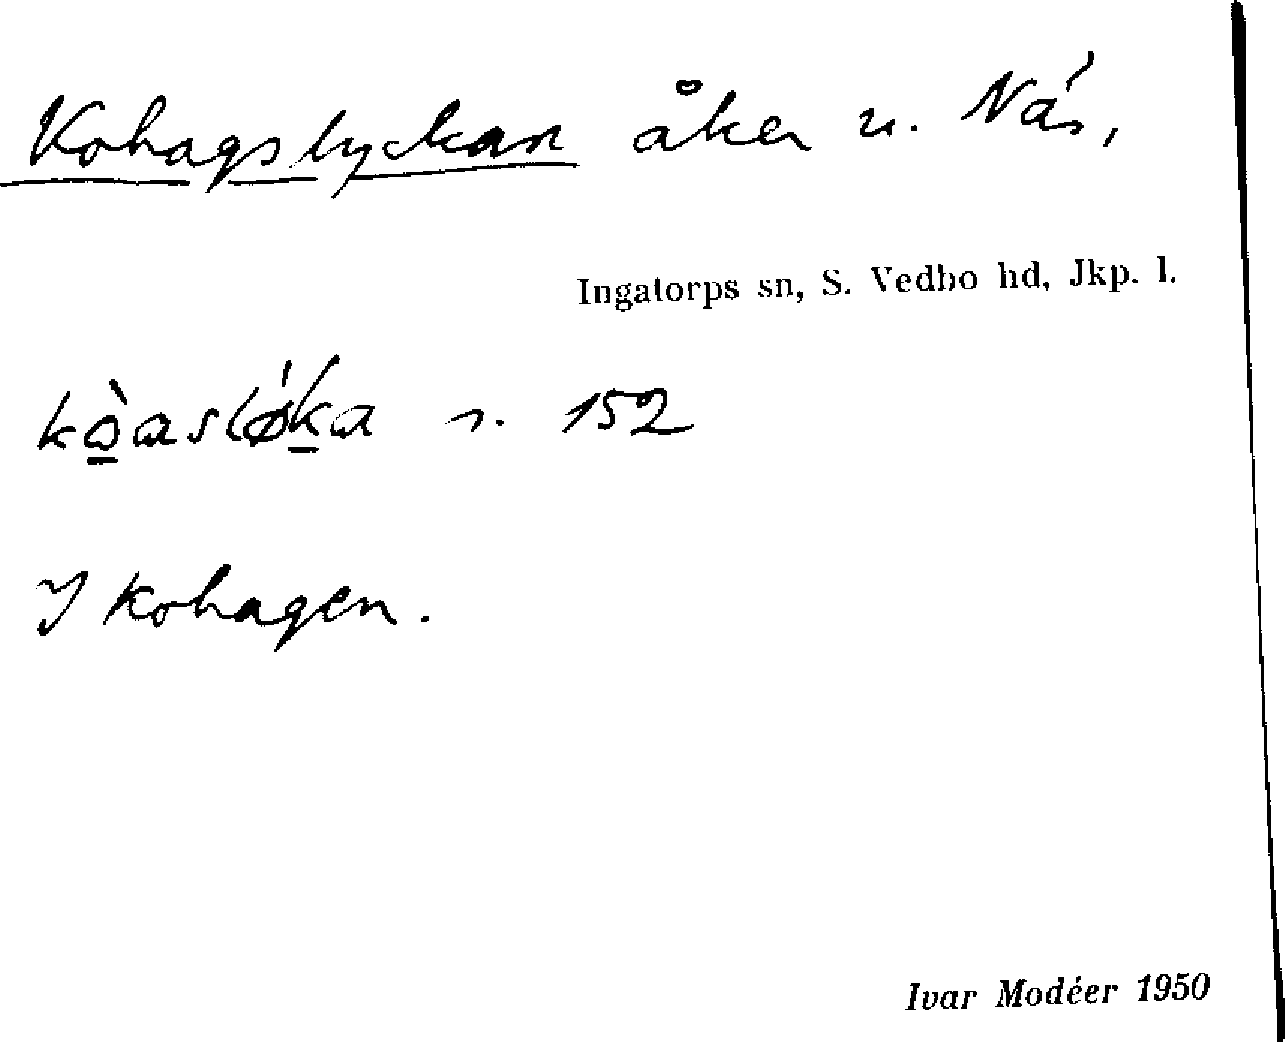 Kohagslyckan åker u. Näs,
Ingatorps sn, S. Vedbo hd, Jkp. l.
kò̲aslǿk̲a s. 152
I kohagen.
Ivar Modéer 1950